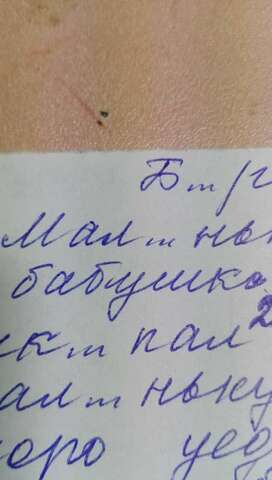 Б т /г
Мал т ны
бабушка
к т пал 2
ал т ньку
оро уед